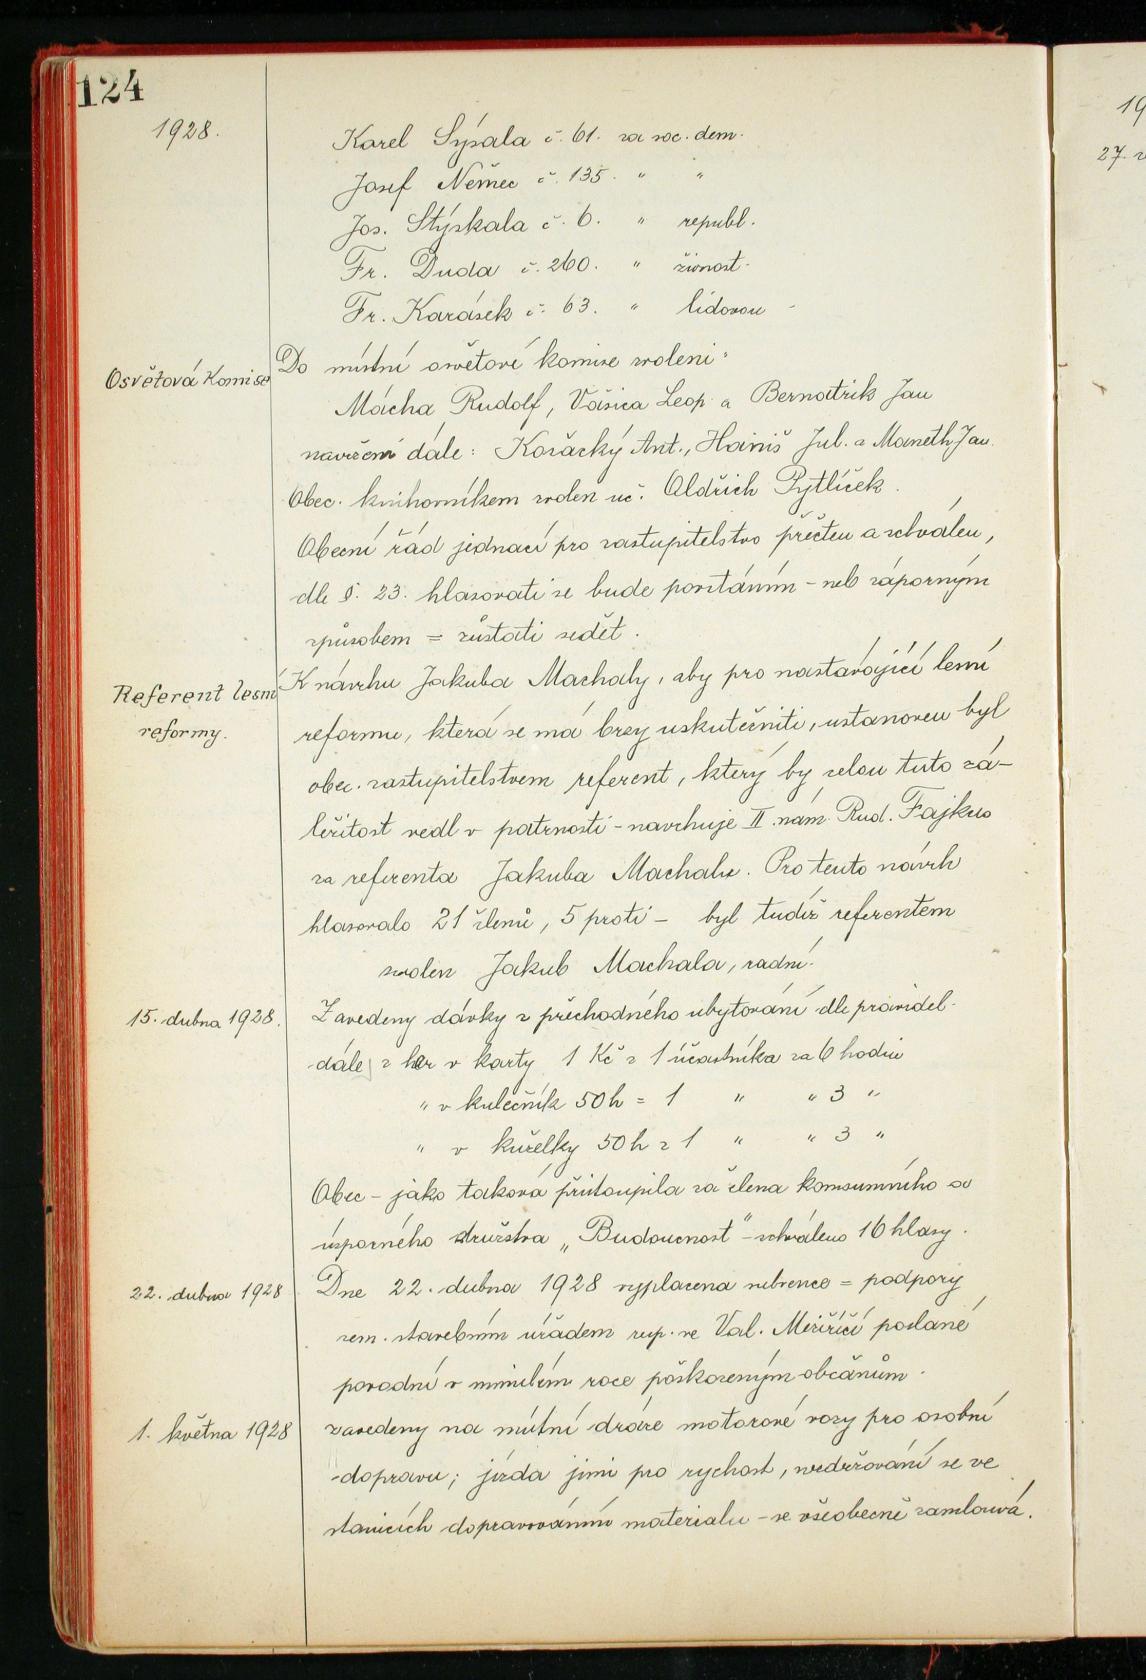 124
1928.
Karel Sýsala č. 61. za soc. dem.
Josef Němec č. 135. " "
Jos. Stýskala č. 6. " republ.
Fr. Duda č. 260. " živnost.
Fr. Karásek č. 63. " lidovou -
Osvětová Komise
Do místní osvětové komise zvoleni:
Mácha Rudolf, Vašica Leop. a Bernatrik Jan
navrženi dále: Kořacký Ant., Hainiš Jul. a Maneth Jan.
Obec. knihovníkem zvolen uč. Oldřich Pytlíček.
Obecní řád jednací pro zastupitelstvo přečten a schválen,
dle §. 23. hlasovati se bude povstáním - neb záporným
způsobem = zůstati sedět.
Referent lesní
reformy.
K návrhu Jakuba Machaly, aby pro nastávající lesní
reformu, která se má brzy uskutečniti, ustanoven byl
obec. zastupitelstvem referent, který by celou tuto zá-
ležitost vedl v patrnosti - navrhuje II. nám. Rud. Fajkus
za referenta Jakuba Machalu. Pro tento návrh
hlasovalo 21 členů, 5 proti - byl tudíž referentem
zvolen Jakub Machala, radní.
15. dubna 1928.
Zavedeny dávky z přechodného ubytování dle pravidel.
dále z her v karty 1 Kč z 1 účastníka za 6 hodin
" v kulečník 50 h = 1 " " 3 "
" v kuželky 50 h z 1 " " 3 "
Obec - jako taková přistoupila za člena konsumního a
úsporného družstva „Budoucnost" - schváleno 16 hlasy.
22. dubna 1928
Dne 22. dubna 1928 vyplacena subvence = podpory
zem. stavebním úřadem exp. ve Val. Meziříčí poslané
povodní v minulém roce poškozeným občanům.
1. května 1928
zavedeny na místní dráze motorové vozy pro osobní
dopravu; jízda jimi pro rychost, nezdržování se ve
stanicích dopravováním materialu - se všeobecně zamlouvá.